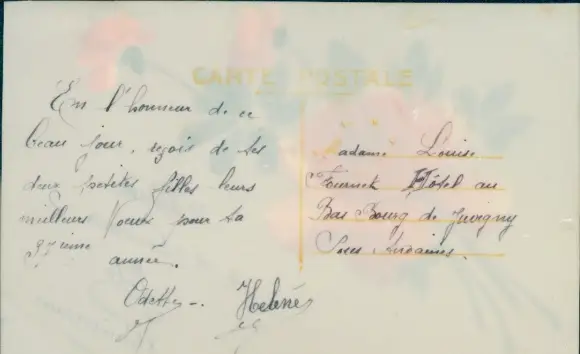 CARTE POSTALE
En l'honneur de ce
beau jour, reçois de tes
deux petites filles leurs
meilleurs Voeux pour ta
97ième
année.
Odette -. Helène
Madame Louise
Fournet Hôtel au
Bas Bourg de Juvigny
Sous Andaines.